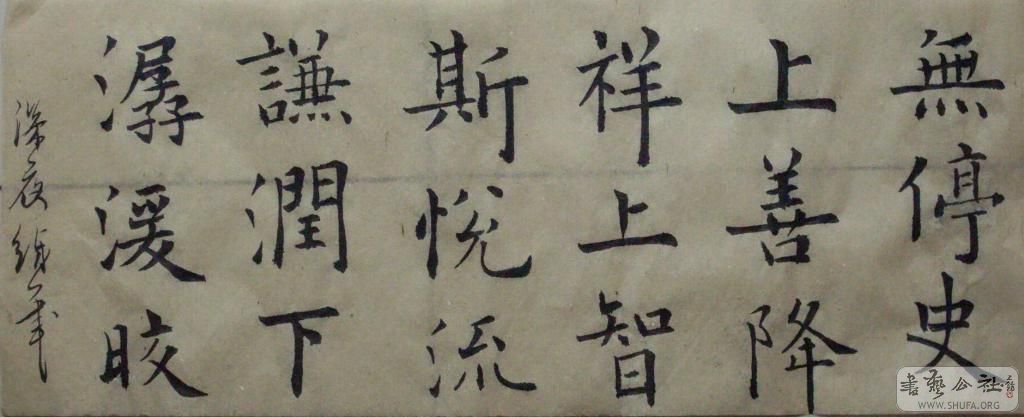 無停史
上善降
祥上智
斯悅流
謙潤下
潺湲皎
深夜
書藝公社
WWW.SHUFA.ORG